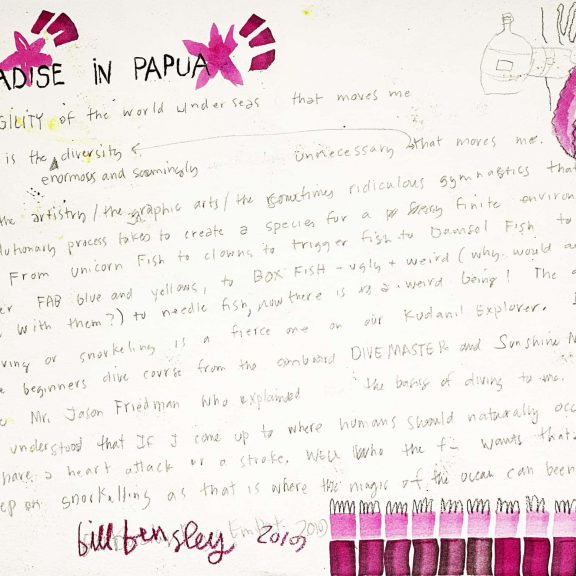 ADISE IN PAPUA
GILITY of the world under seas that moves me
is the diversity that moves me.
enormoss and seemingly unnecessary
the artistry / the graphic arts / the sometimes ridiculous gymnastics that
olutionary process takes to create a species for a finite environ
From unicorn Fish to clowns to trigger fish to Damsol Fish to
er FAB blue and yellows, to BOX FISH - ugly + weird (why would a
with them?) to needle fish, now there is a weird being! The a
ving or snorkeling is a fierce one on our Kudanil Explorer. I
e beginners dive course from the onboard DIVE MASTER and Sunshine N
Mr. Jason Friedman who explained the basics of diving to me.
understood that If I come up to where humans should naturally occ
have a heart attack or a stroke. Well who the f- wants that?
ep on snorkelling as that is where the magic of the ocean can been
bill bensley 2019